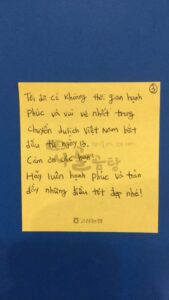 Tôi đã có khoảng thời gian hạnh
Phúc và vui vẻ nhất trong
chuyến du lịch Việt Nam bắt
đầu từ ngày 13.
Cám ơn các bạn!
Hãy luôn hạnh phúc và tràn
đầy những điều tốt đẹp nhé!
고려농협